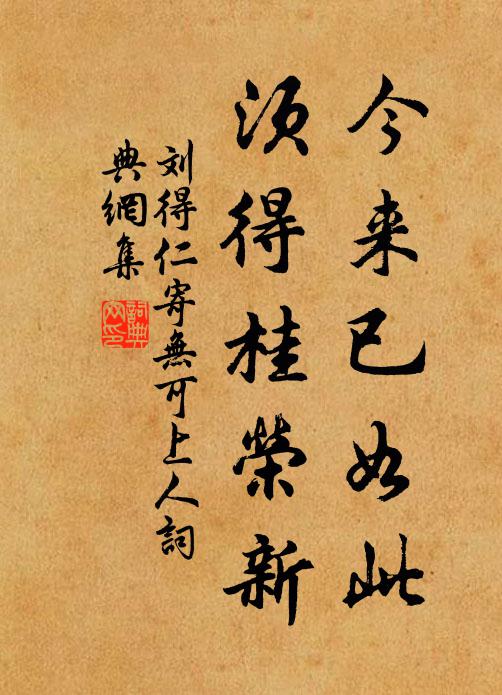 今来已如此
须得桂荣新
刘得仁寄無可上人詞
典網集
詞典网印